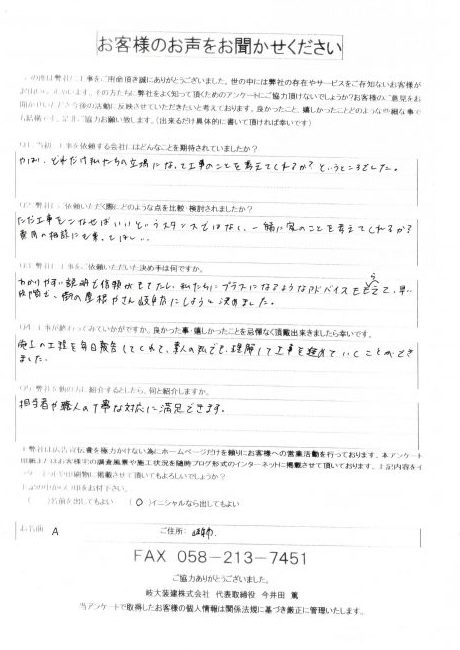 お客様のお声をお聞かせください
この度は弊社に工事をご用命頂き誠にありがとうございました。世の中には弊社の存在やサービスをご存知ないお客様が
弊社をよく知って頂くためのアンケートにご協力頂けないでしょうか？お客様のご意見をお
今後の活動に反映させていただきたいと考えております。良かったこと、嬉しかったことどのような些細な事で
ご協力お願い致します。（出来るだけ具体的に書いて頂ければ幸いです）
工事を依頼する会社にはどんなことを期待されていましたか？
やはり、どれだけ私たちの立場になって工事のことを考えてくれるか？というところでした。
ご依頼いただく際にどのような点を比較・検討されましたか？
ただ工事をこなせばいいというスタンスではなく、一緒に家のことを考えてくれるか？
費用の相談にも乗ってほしい。
ご依頼いただいた決め手は何ですか。
わかりやすい説明で信頼がもてたし、私たちにプラスになるようなアドバイスをもらえて、早い
段階で、街の屋根やさん岐阜店にしようと決めました。
工事が終わってみていかがですか。良かった事・嬉しかったことを忌憚なく頂戴出来きましたら幸いです。
施工の工程を毎日報告してくれて、素人の私でも理解して工事を進めていくことができ
ました。
紹介するとしたら、何と紹介しますか。
担当者や職人の丁寧な対応に満足できます。
弊社は広告宣伝費を極力かけない為にホームページだけを頼りにお客様への営業活動を行っております。本アンケート
お客様宅の調査風景や施工状況を随時ブログ形式のインターネットに掲載させて頂いております。上記内容をイ
に掲載させて頂いてもよろしいでしょうか？
( )名前を出してもよい (○)イニシャルなら出してもよい
お名前 A ご住所: 岐阜市
FAX 058-213-7451
ご協力ありがとうございました。
岐大装建株式会社 代表取締役 今井田 篤
当アンケートで取得したお客様の個人情報は関係法規に基づき厳正に管理いたします。